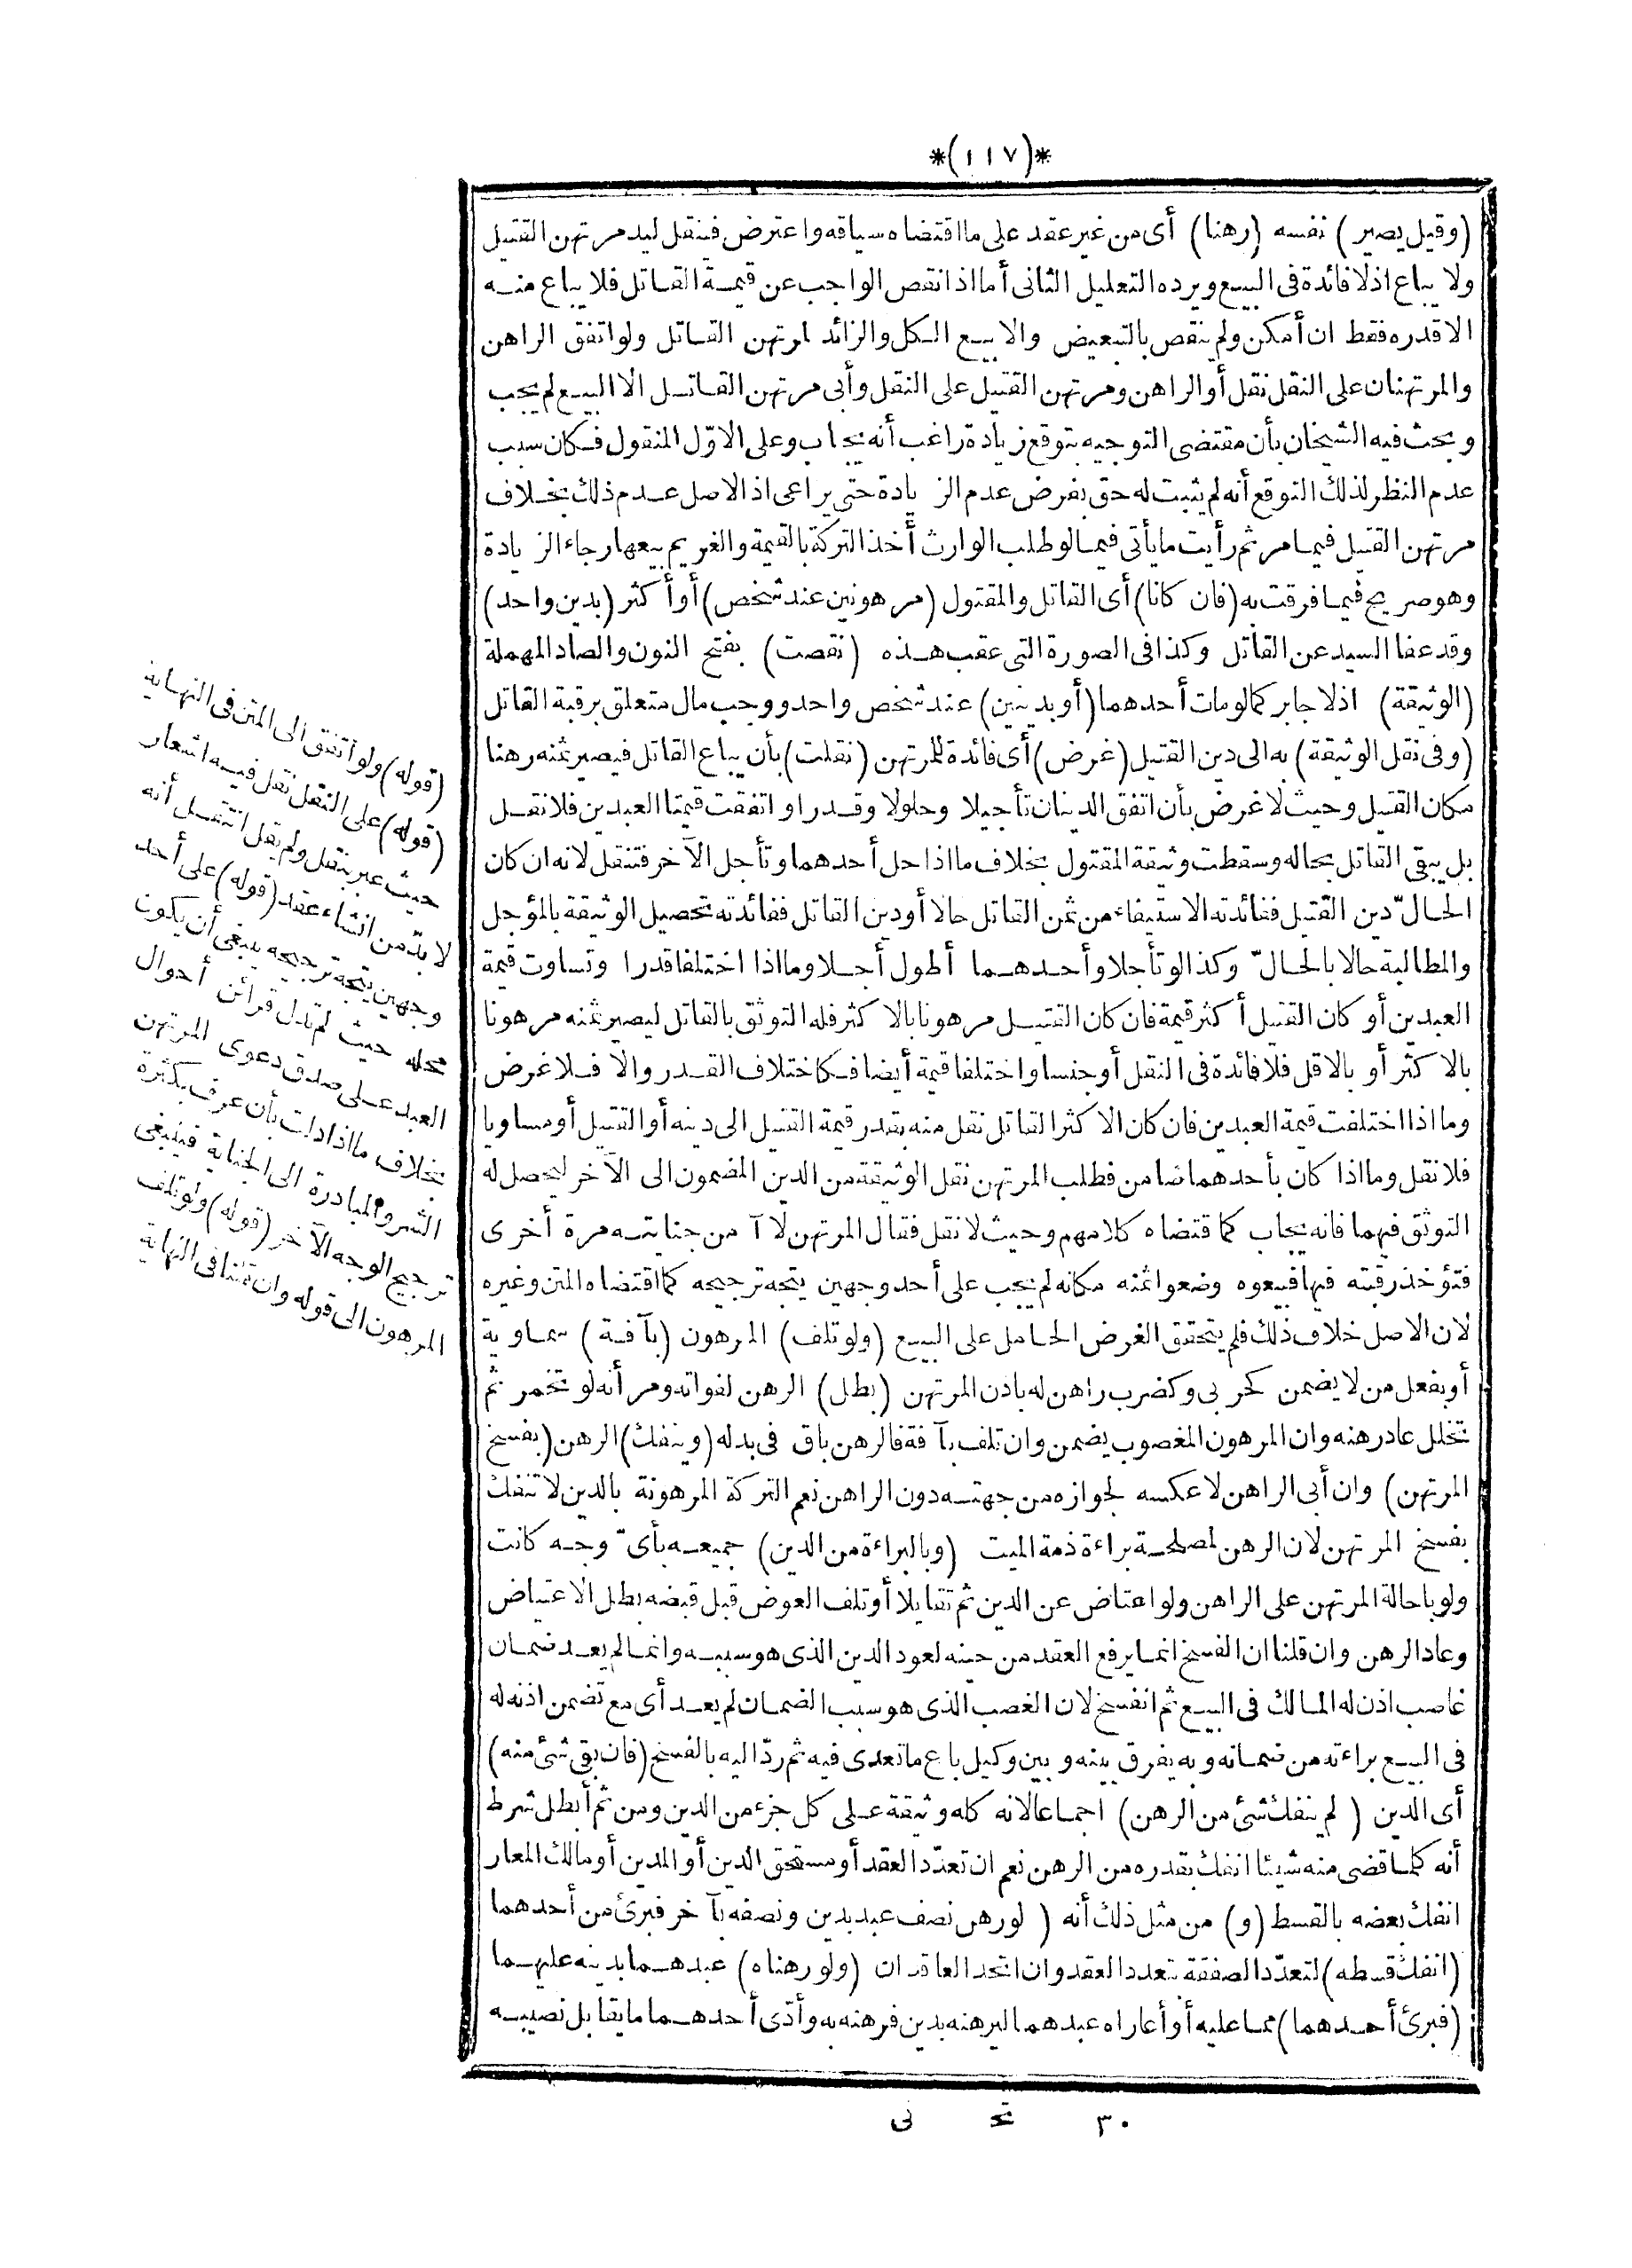 *(١١٧)*
(وقيل يصير) نفسه (رهنا) أى من غير عقد على ما اقتضاه سياقه واعترض فينقل ليد مرتهن القتيل
ولا يباع اذ لا فائدة فى البيع ويرده التعليل الثانى أما اذا نقص الواجب عن قيمة القاتل فلا يباع منه
الا قدره فقط ان أمكن ولم ينقص بالتبعيض والا بيع الكل والزائد لمرتهن القاتل ولو اتفق الراهن
والمرتهنان على النقل نقل أو الراهن ومرتهن القتيل على النقل وأبى مرتهن القاتل الا البيع لم يجب
وبحث فيه الشيخان بأن مقتضى التوجيه بتوقع زيادة راغب أنه يجاب وعلى الاوّل المنقول فكان سبب
عدم النظر لذلك التوقع أنه لم يثبت له حق بفرض عدم الزيادة حتى يراعى اذ الاصل عدم ذلك بخلاف
مرتهن القتيل فيما مر ثم رأيت ما يأتى فيما لو طلب الوارث أخذ التركة بالقيمة والغريم بيعها رجاء الزيادة
وهو صريح فيما فرقت به (فان كانا) أى القاتل والمقتول (مرهونين عند شخص) أو أكثر (بدين واحد)
وقد عفا السيد عن القاتل وكذا فى الصورة التى عقب هذه (نقصت) بفتح النون والصاد المهملة
(الوثيقة) اذ لا جابر كما لو مات أحدهما (أو بدينين) عند شخص واحد ووجب مال متعلق برقبة القاتل
(وفى نقل الوثيقة) به الى دين القتيل (غرض) أى فائدة للمرتهن (نقلت) بأن يباع القاتل فيصير ثمنه رهنا
مكان القتيل وحيث لا غرض بأن اتفق الدينان تأجيلا وحلولا وقدرا واتفقت قيمتا العبدين فلا نقل
بل يبقى القاتل بحاله وسقطت وثيقة المقتول بخلاف ما اذا حل أحدهما وتأجل الآخر فتنقل لانه ان كان
الحالّ دين القتيل ففائدته الاستيفاء من ثمن القاتل حالا أو دين القاتل ففائدته تحصيل الوثيقة بالمؤجل
والمطالبة حالا بالحالّ وكذا لو تأجلا وأحدهما أطول أجلا وما اذا اختلفا قدرا وتساوت قيمة
العبدين أو كان القتيل أكثر قيمة فان كان القتيل مرهونا بالاكثر فله التوثق بالقاتل ليصير ثمنه مرهونا
بالاكثر أو بالاقل فلا فائدة فى النقل أو جنسا واختلفا قيمة أيضا فكاختلاف القدر والا فلا غرض
وما اذا اختلفت قيمة العبدين فان كان الاكثر القاتل نقل منه بقدر قيمة القتيل الى دينه أو القتيل أو مساويا
فلا نقل وما اذا كان بأحدهما ضامن فطلب المرتهن نقل الوثيقة من الدين المضمون الى الآخر ليحصل له
التوثق فيهما فانه يجاب كما قتضاه كلامهم وحيث لا نقل فقال المرتهن لا آمن جنايته مرة أخرى
فتؤخذ رقبته فيها فبيعوه وضعوا ثمنه مكانه لم يجب على أحد وجهين يتجه ترجيحه كما اقتضاه المتن وغيره
لان الاصل خلاف ذلك فلم يتحقق الغرض الحامل على البيع (ولو تلف) المرهون (بآفة) سماوية
أو بفعل من لا يضمن كحربى وكضرب راهن له باذن المرتهن (بطل) الرهن لفواته ومر أنه لو تخمر ثم
تخلل عاد رهنه وان المرهون المغصوب يضمن وان تلف بآفة فالرهن باق فى بدله (وينفك) الرهن (بفسخ
المرتهن) وان أبى الراهن لا عكسه لجوازه من جهته دون الراهن نعم التركة المرهونة بالدين لا تنفك
بفسخ المرتهن لان الرهن لمصلحة براءة ذمة الميت (وبالبراءة من الدين) جميعه بأىّ وجه كانت
ولو باحالة المرتهن على الراهن ولو اعتاض عن الدين ثم تقايلا أو تلف العوض قبل قبضه بطل الاعتياض
وعاد الرهن وان قلنا ان الفسخ انما يرفع العقد من حينه لعود الدين الذى هو سببه وانما لم يعد ضمان
غاصب اذن له المالك فى البيع ثم انفسخ لان الغصب الذى هو سبب الضمان لم يعد أى مع تضمن اذنه له
فى البيع براءته من ضمانه وبه يفرق بينه وبين وكيل باع ما تعدى فيه ثم ردّ اليه بالفسخ (فان بقى شئ منه)
أى الدين (لم ينفك شئ من الرهن) اجماعا لانه كله وثيقة على كل جزء من الدين ومن ثم أبطل شرط
أنه كلما قضى منه شيئا انفك بقدره من الرهن نعم ان تعدّد العقد أو مستحق الدين أو المدين أو مالك المعار
انفك بعضه بالقسط (و) من مثل ذلك أنه (لو رهن نصف عبد بدين ونصفه بآخر فبرئ من أحدهما
(انفك قسطه) لتعدّد الصفقة بتعدد العقد وان اتحد العاقدان (ولو رهناه) عبدهما بدينه عليهما
(فبرئ أحدهما) مما عليه أو أعاراه عبدهما ليرهنه بدين فرهنه به وأدّى أحدهما ما يقابل نصيبه
(قوله) ولو اتفق الى المتن فى النهاية
(قوله) على النقل نقل فيه اشعار
حيث عبر بنقل ولم يقل انتقل أنه
لا بدّ من انشاء عقد (قوله) على أحد
وجهين يتجه ترجيحه ينبغى أن يكون
محله حيث لم تدل قرائن أحوال
العبد على صدق دعوى المرتهن
بخلاف ما اذا دلت بأن عرف بكثرة
الشر والمبادرة الى الجناية فينبغى
ترجيح الوجه الآخر (قوله) ولو تلف
المرهون الى قوله وان قلنا فى النهاية
٣٠ تح نى